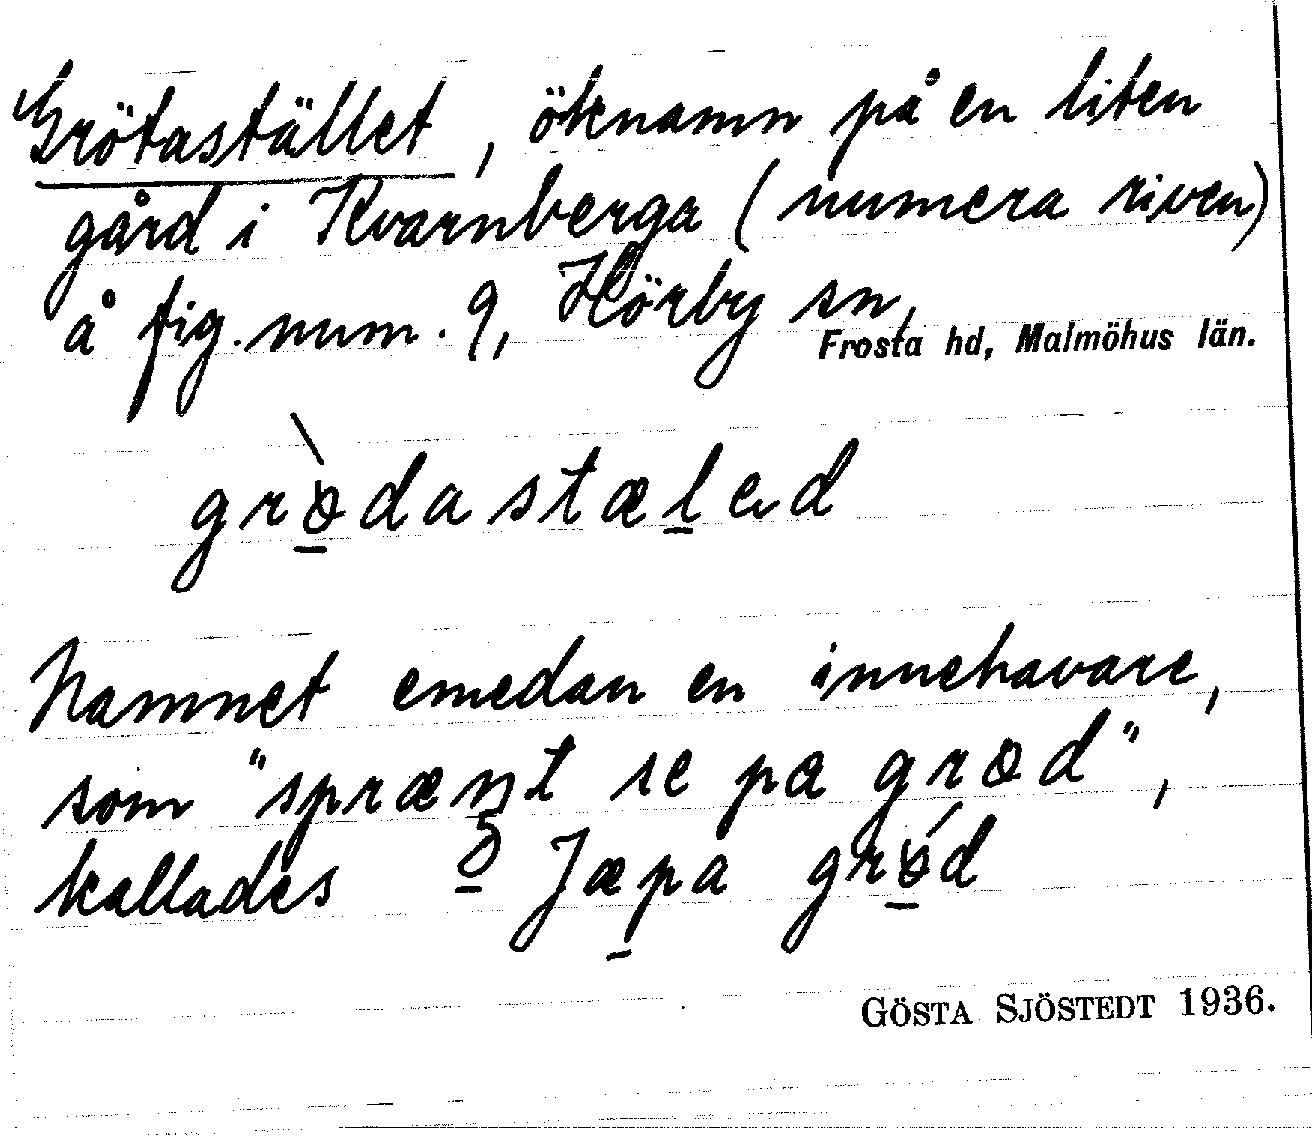 Grötastället, öknamn på en liten
gård i Kvarnberga (numera riven)
å fig. num. 9, Hörby sn,
Frosta hd, Malmöhus län.
grödastæled
Namnet emedan en innehavare,
som "sprænt se pa grød",
kallades Jæpa grød
GÖSTA SJÖSTEDT 1936.